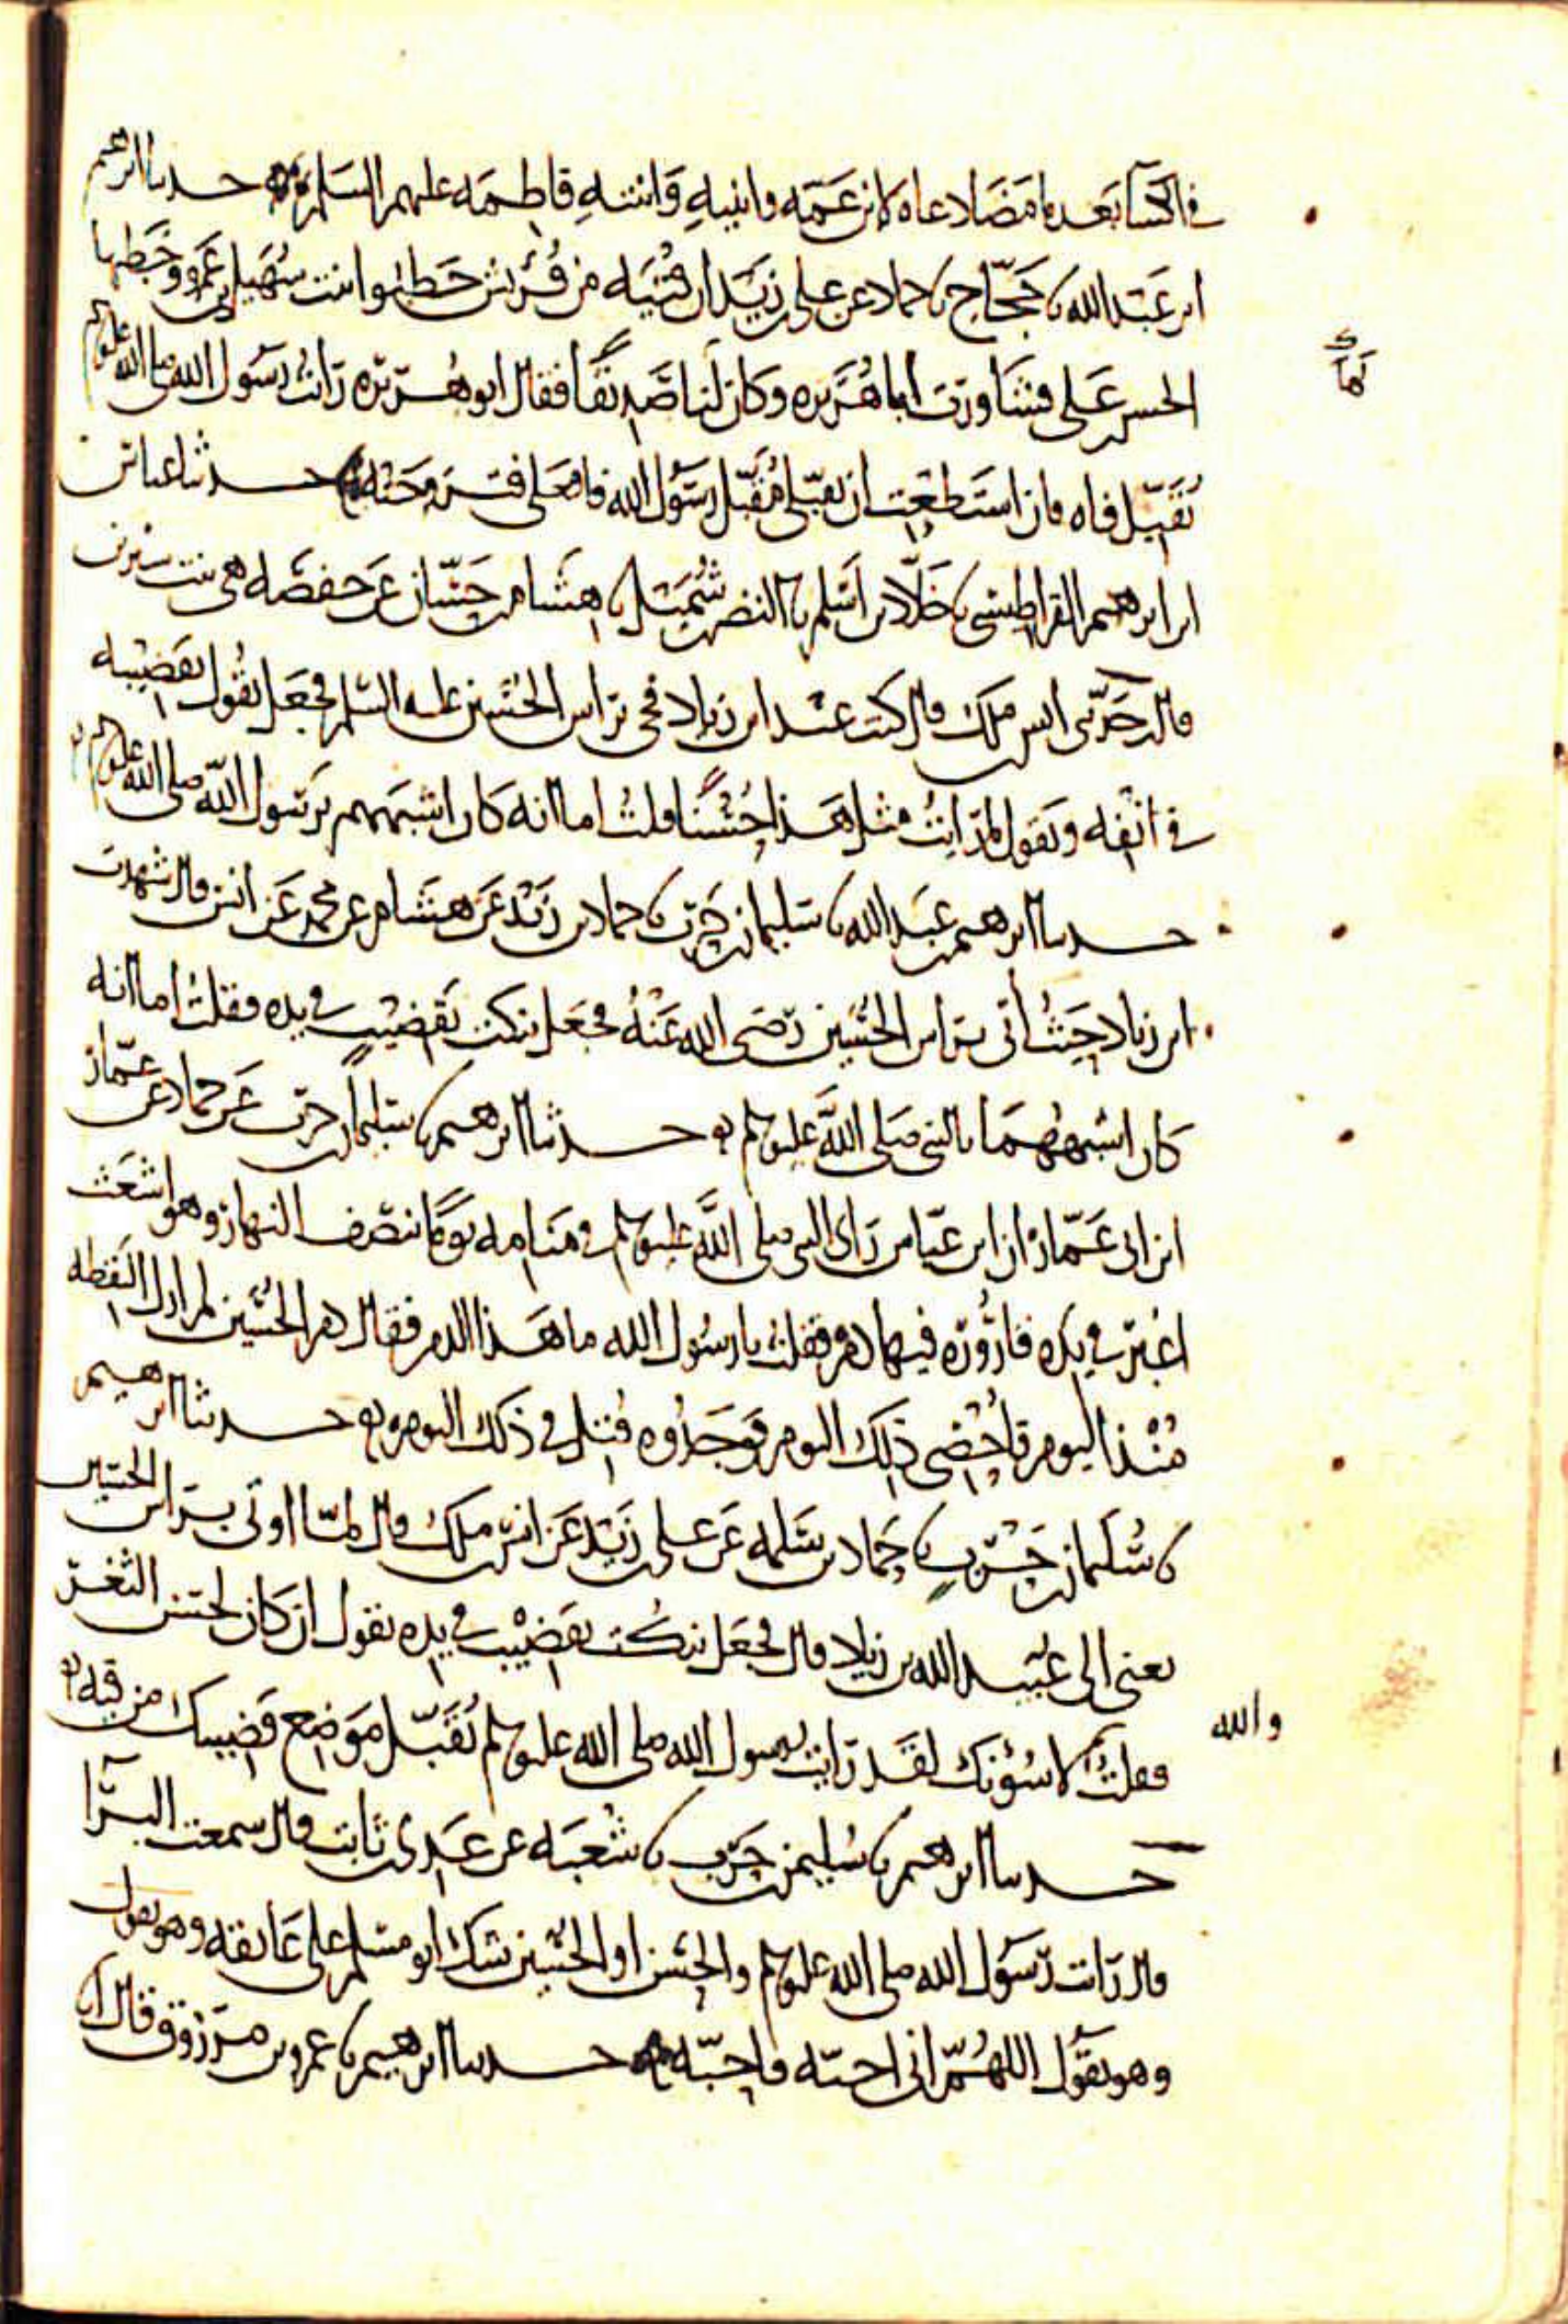 في الكسا بعد ما مضا دعاه لابن عمه وابنيه وابنته فاطمه عليهم السلم حدثنا ابرهيم
ابن عبد الله نا حجاج نا حماد عن علي بن زيد ان فتيه من قريش خطبوا ابنت سهيل بن عمرو وخطبها
الحسن بن علي فشاورت ابا هريره وكان لنا صديقا فقال ابو هريره رايت رسول الله صلى الله عليه وسلم
كما
يقبل فاه فان استطعت ان تقبلي مقبل رسول الله فافعلي فتزوجته حدثنا عباس
ابن ابرهيم القراطيسي نا خلاد بن اسلم نا النضر بن شميل نا هشام بن حسان عن حفصه هي بنت سيرين
قال حدثني انس بن ملك قال كنت عند ابن زياد فجي براس الحسين عليه السلم فجعل يقول بقضيبه
في انفه ويقول لم رايت مثل هذا حسنا قلت اما انه كان اشبههم برسول الله صلى الله عليه وسلم
حدثنا ابرهيم بن عبد الله نا سليمان بن حرب نا حماد بن زيد عن هشام عن محمد عن انس قال شهدت
ابن زياد حيث أتي براس الحسين رضي الله عنه فجعل ينكت بقضيب في يده فقلت اما انه
كان اشبههما بالنبي صلى الله عليه وسلم حدثنا ابرهيم نا سليمان بن حرب عن حماد عن عمار
ابن ابي عمار ان ابن عباس راى النبي صلى الله عليه وسلم في منامه يوما بنصف النهار وهو اشعث
اغبر في يده قارورة فيها دم فقلت يا رسول الله ما هذا الدم فقال دم الحسين لم ازل التقطه
منذ اليوم فأحصي ذلك اليوم فوجدوه قتل في ذلك اليوم حدثنا ابرهيم
نا سليمان بن حرب نا حماد بن سلمه عن علي بن زيد عن انس بن ملك قال لما اوتي براس الحسين
يعني الى عبيد الله بن زياد قال فجعل ينكت بقضيب في يده يقول ان كان لحسن الثغر
فقلت لاسؤنك لقد رايت رسول الله صلى الله عليه وسلم يقبل موضع قضيبك من فيه
والله
حدثنا ابرهيم نا سليمن بن حرب نا شعبه عن عدي بن ثابت قال سمعت البرآ
قال رايت رسول الله صلى الله عليه وسلم والحسن او الحسين شك ابو مسلم على عاتقه وهو يقول
وهو يقول اللهم اني احبه فاحبه حدثنا ابرهيم نا عمرو بن مرزوق قال انا